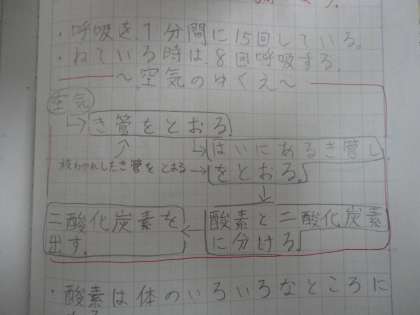 ・呼吸を1分間に15回している。
・ねている時は8回呼吸する
～空気のゆくえ～
空気
き管をとおる
はいにあるき管し
をとおる。
したき管をとおる
酸素と二酸化炭素
に分ける
二酸化炭素を
出す。
・酸素は体のいろいろなところに